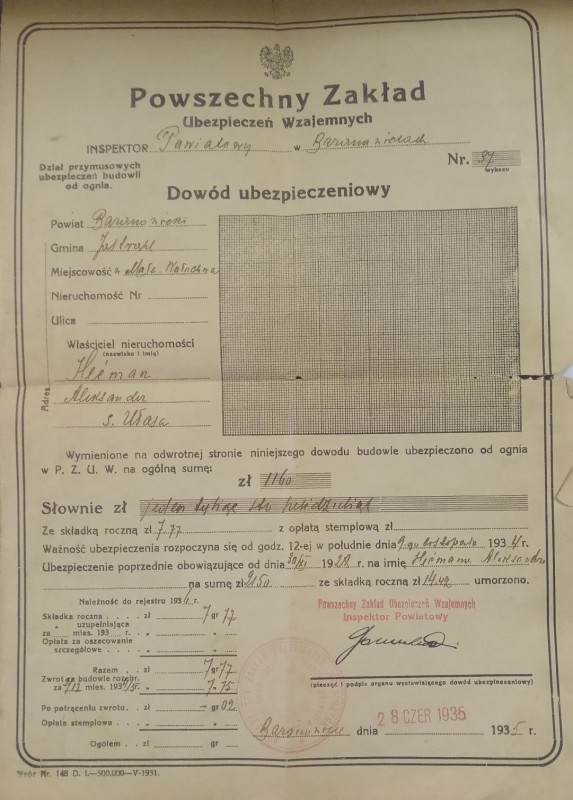 Powszechny Zakład
Ubezpieczeń Wzajemnych
INSPEKTOR Powiatowy w Baranowiczach
Nr. 37
wykazu
Dział przymusowych
ubezpieczeń budowli
od ognia.
Dowód ubezpieczeniowy
Powiat
Gmina
Miejscowość
Nieruchomość Nr
Ulica
Właściciel nieruchomości
(nazwisko i imię)
Adres
Aleksander
s. Ułasa
Wymienione na odwrotnej stronie niniejszego dowodu budowle ubezpieczono od ognia
w P. Z. U. W. na ogólną sumę:
zł 1160
Słownie zł jeden tysiąc sto
Ze składką roczną zł 7.77 z opłatą stemplową zł
Ważność ubezpieczenia rozpoczyna się od godz. 12-ej w południe dnia 9-go listopada 1934 r.
Ubezpieczenie poprzednie obowiązujące od dnia 30/XI 1928 r. na imię Aleksandra
na sumę zł 2150 ze składką roczną zł umorzono.
Należność do rejestru 193 r.
Składka roczna . . . . zł 7 gr 77
" uzupełniająca
za mies. 193 r. "
Opłata za oszacowanie
szczegółowe . . . . "
Razem . . zł 7 gr 77
Zwrot za budowle rozebr.
za mies. 193 r. " 7 - 75
Po potrąceniu zwrotu. zł — gr 02
Opłata stemplowa . . "
Ogółem . . zł gr
Powszechny Zakład Ubezpieczeń Wzajemnych
Inspektor Powiatowy
(pieczęć i podpis organu wystawiającego dowód ubezpieczeniowy)
dnia 28 CZER 1935 1935 r.
Wzór Nr. 148 D. I.—500.000—V-1931.